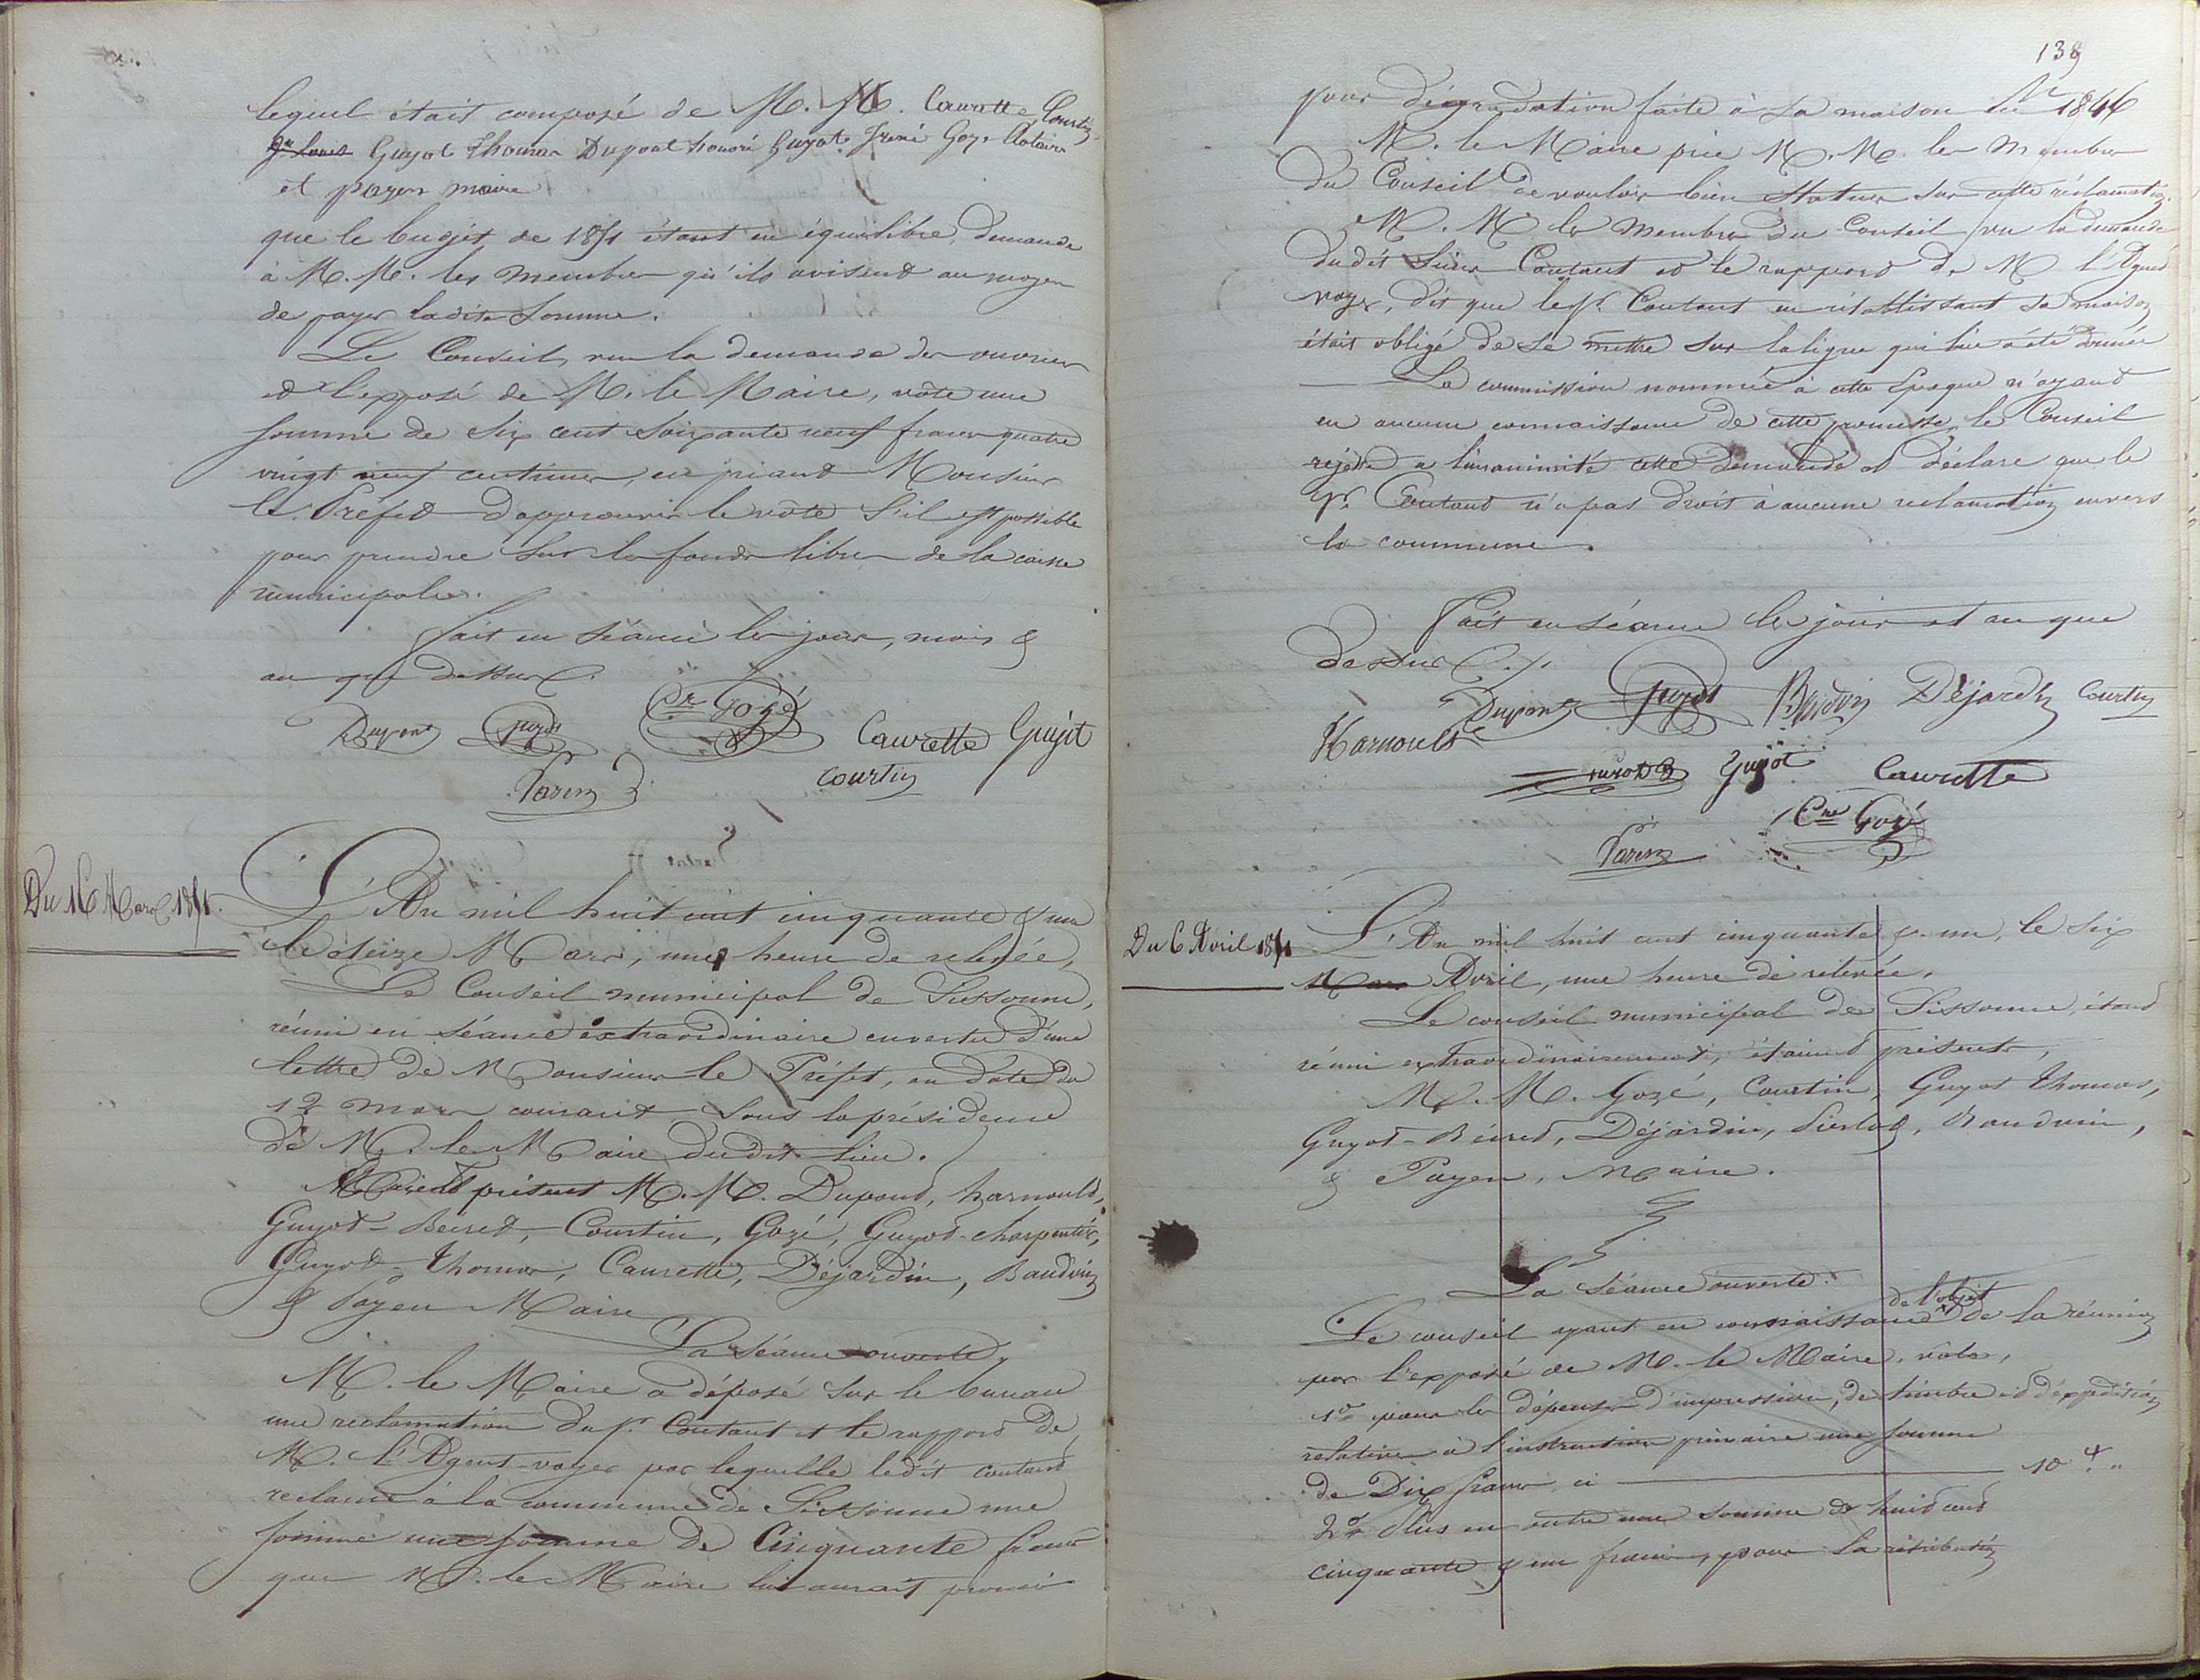 lequel était composé de M. M. Caurette, Courtin
Guyot Thomas Dupont honoré Guyot Gozé Notaire
et payen maire
que le bugjet de 1851 étant en équilibre, demande
à M. M. les membres qu'ils avisent au moyen
de payer ladite somme.
Le Conseil, vu la demande des ouvriers
et l'exposé de M. le Maire, vôte une
somme de six cent soixante neuf francs quatre
vingt neuf centimes, en priant Monsieur
le Préfet d'approuver le vôte s'il est possible
pour prendre sur les fonds libres de la caisse
municipale.
Fait en séance les jour, mois &
an que dessus.
Dupont Guyot Gozé Caurette Guyot
Payen Courtin
Du 16 Mars 1851.
L'An mil huit cent cinquante & un
le seize Mars, une heure de relevée,
Le Conseil municipal de Sissonne,
réuni en séance extraordinaire en vertu d'une
lettre de Monsieur le Préfet, en date du
12 mars courant sous la présidence
de M. le Maire dudit lieu.
Etaient présent M. M. Dupont, harnould,
Guyot-Beiret, Courtin, Gozé, Guyot-charpentier,
Guyot-Thomas, Caurette, Déjardin, Baudvin
& Payen Maire
La séance ouverte,
M. le Maire a déposé sur le bureau
une reclamation du sr. Coutant et le rapport de
M. l'Agent-voyer par lequelle ledit coutant
reclame à la commune de Sissonne une
somme une somme de Cinquante francs
que M. le Maire lui aurait promis
139
pour dégradation faite à sa maison en 1846
M. le Maire prie M. M. les membres
du Conseil de vouloir bien statuer sur cette réclamation.
M. M. les membres du Conseil vu la demande
dudit sieur Coutant et le rapport de M. l'Agent
voyer, dit que le sr. Coutant en rétablissant sa maison
était obligé de se mettre sur la ligne qui lui a été donnée
La commission nommée à cette époque n'ayant
eu aucune connaissance de cette promesse, le Conseil
rejette a l'unanimité cette demande et déclare que le
sr. Coutant n'a pas droit à aucune reclamation envers
la commune.
Fait en séance les jour et an que
dessus.
Harnould Dupont Guyot Baudvin Déjardin Courtin
Guyot Caurette
Payen Gozé
Du 6 Avril 1851
L'An mil huit cent cinquante & un, le six
Mars Avril, une heure de relevée,
Le conseil municipal de Sissonne, étant
réuni extraordinairement, étaient présents,
M. M. Gozé, Courtin, Guyot Thomas,
Guyot-Beiret, Déjardin, Pierlot, Baudvin,
& Payen, Maire.
La séance ouverte.
Le conseil ayant eu connaissance de l'objet de la réunion
par l'exposé de M. le Maire, vôte,
1º pour les dépenses d'impression, de timbre et d'expédition
relative à l'instruction primaire une somme
de Dix francs, ci 10 f "
2º Plus en outre une somme de huit cent
cinquante & un francs, pour la rétribution